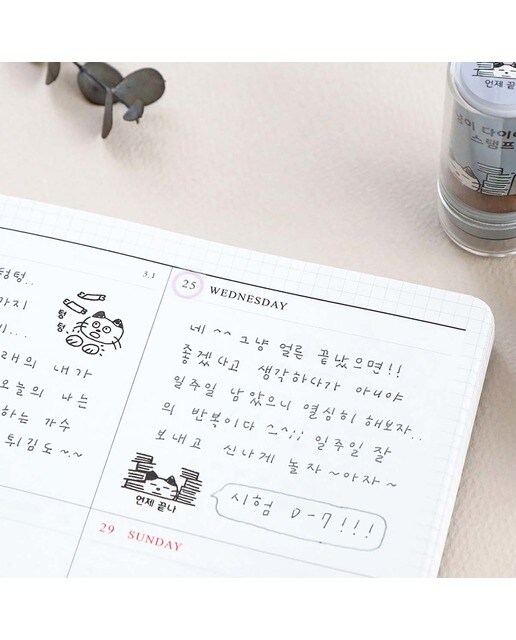 언제 끝
다이
스탬프
텅텅..
3.1
까지
텅
텅
내가
오늘의 나는
하는 가수
튀김도 ~.~
25 WEDNESDAY
네 ^^ 그냥 얼른 끝났으면!!
좋겠다고 생각하다가 아니야
일주일 남았으니 열심히 해보자..
의 반복이다 ^_^;; 일주일 잘
보내고 신나게 놀자~아자~
언제 끝나
시험 D-7!!!
29 SUNDAY